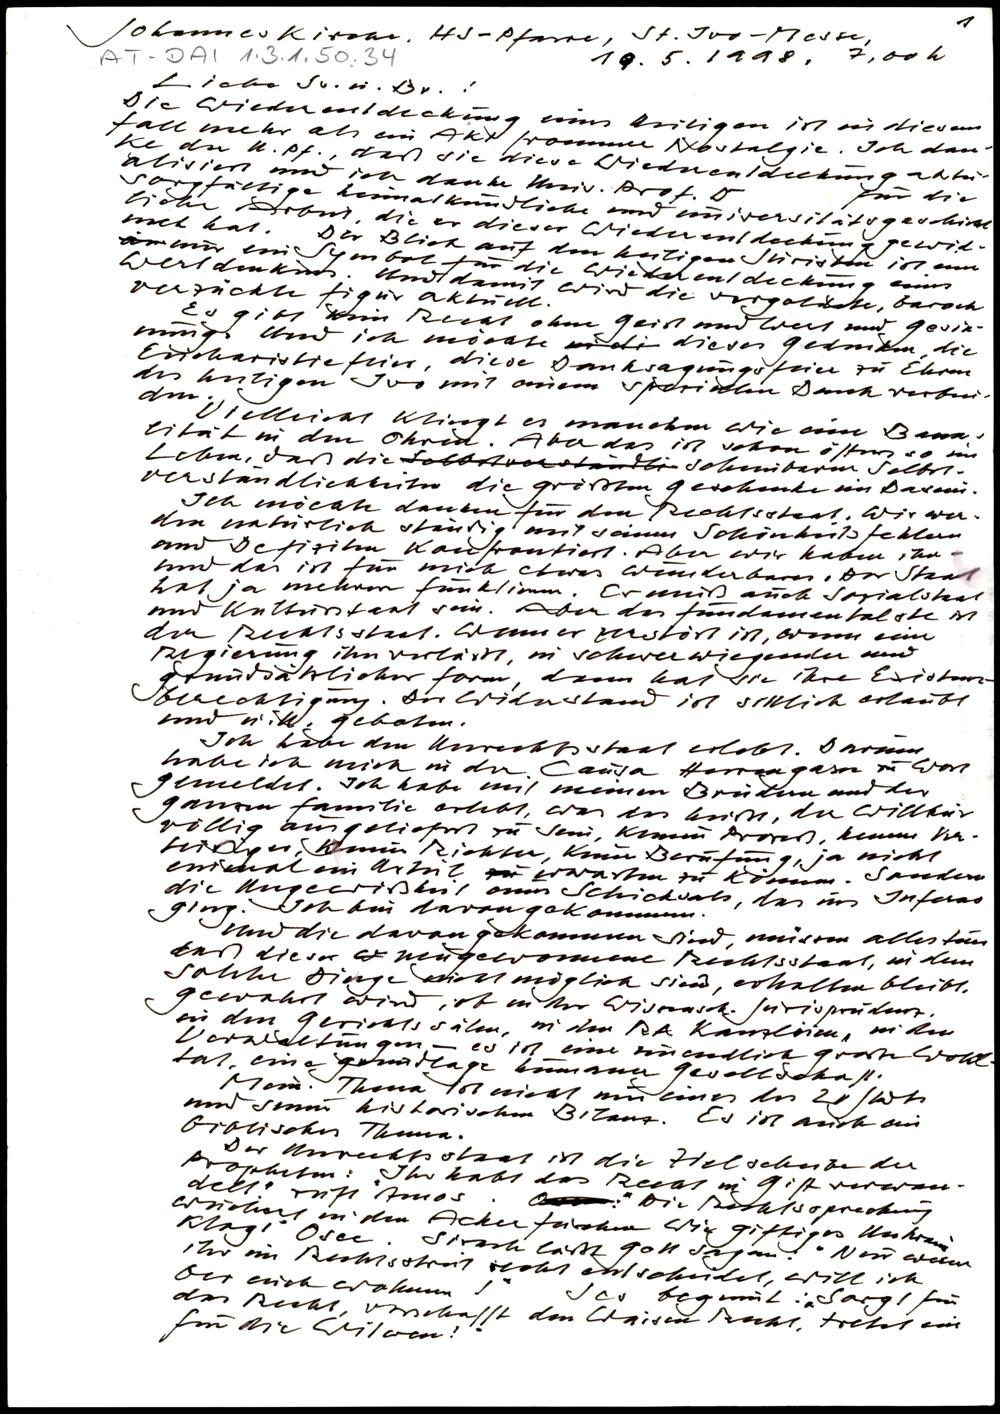 Johannes Kirche. HS-Pfarre, St. Ivo-Messe, 1
AT-DAI 1.3.1.50.34 19.5.1998. 7,00 h
Liebe Sv. u. Bv.!
Die Wiederentdeckung eines Heiligen ist in diesem
Fall mehr als ein Akt frommer Nostalgie. Ich dan-
ke der U.Pf., daß sie diese Wiederentdeckung aktu-
alisiert und ich danke Univ. Prof. D für die
sorgfältige heimatkundliche und universitätsgeschicht
liche Arbeit, die er dieser Wiederentdeckung gewid-
met hat. Der Blick auf den heiligen Juristen ist nun
nur ein Symbol für die Wiederentdeckung eines
Wertdenkens. Und damit wird die vergoldete, barock
verzückte Figur aktuell.
Es gibt kein Recht ohne Geist und Wert und Gesin-
nung. Und ich möchte diesen Gedanken, die
Eucharistiefeier, diese Danksagungsfeier zu Ehren
des heiligen Ivo mit einem speziellen Dank verbin-
den.
Vielleicht klingt es manchem wie eine Bana-
lität in den Ohren. Aber das ist schon öfters so im
Leben, daß die Selbstverständli scheinbaren Selbst-
verständlichkeiten die größten Geschenke im Dasein.
Ich möchte danken für den Rechtsstaat. Wir wer-
den natürlich ständig mit seinen Schönheitsfehlern
und Defiziten konfrontiert. Aber wir haben ihn -
und das ist für mich etwas Wunderbares. Der Staat
hat ja mehrere Funktionen. Er muß auch Sozialstaat
und Kulturstaat sein. Aber das fundamentalste ist
der Rechtsstaat. Wenn er zerstört ist, wenn eine
Regierung ihn verläßt, in schwerwiegender und
grundsätzlicher Form, dann hat sie ihre Existenz-
berechtigung. Der Widerstand ist sittlich erlaubt
und geboten.
Ich habe den Unrechtsstaat erlebt. Darum
habe ich mich in der Causa zu Wort
gemeldet. Ich habe mit meinen Brüdern und der
ganzen Familie erlebt, was das heißt, der Willkür
völlig ausgeliefert zu sein, keinen Prozeß, keinen Ver-
teidiger, keinen Richter, keine Berufung, ja nicht
einmal ein Urteil zu erwarten zu können. Sondern
die Ungewißheit eines Schicksals, das ins Inferno
ging. Ich bin davongekommen.
Und die davongekommen sind, müssen alles tun
daß dieser neugewonnene Rechtsstaat, in dem
solche Dinge nicht möglich sind, erhalten bleibt.
gewahrt wird, ob in der Wissensch. Jurisprudenz,
in den Gerichtssälen, in den RA Kanzleien, in den
Verwaltungen - es ist eine unendlich große Wohl-
tat, eine Grundlage humaner Gesellschaft.
Mein Thema ist nicht nur eines des 20 Jhdts
und seiner historischen Bilanz. Es ist auch ein
biblisches Thema.
Der Unrechtsstaat ist die Zielscheibe der
Propheten: "Ihr habt das Recht in Gift verwan-
delt" ruft Amos. "Die Rechtssprechung
wuchert in den Ackerfurchen wie giftiges Unkraut
klagt Osee. Sirach läßt Gott sagen: "Nur wenn
ihr im Rechtsstreit recht entscheidet, will ich
bei euch wohnen!" Jes beginnt: "Sorgt für
das Recht, verschafft den Waisen Recht, tretet ein
für die Witwen!"